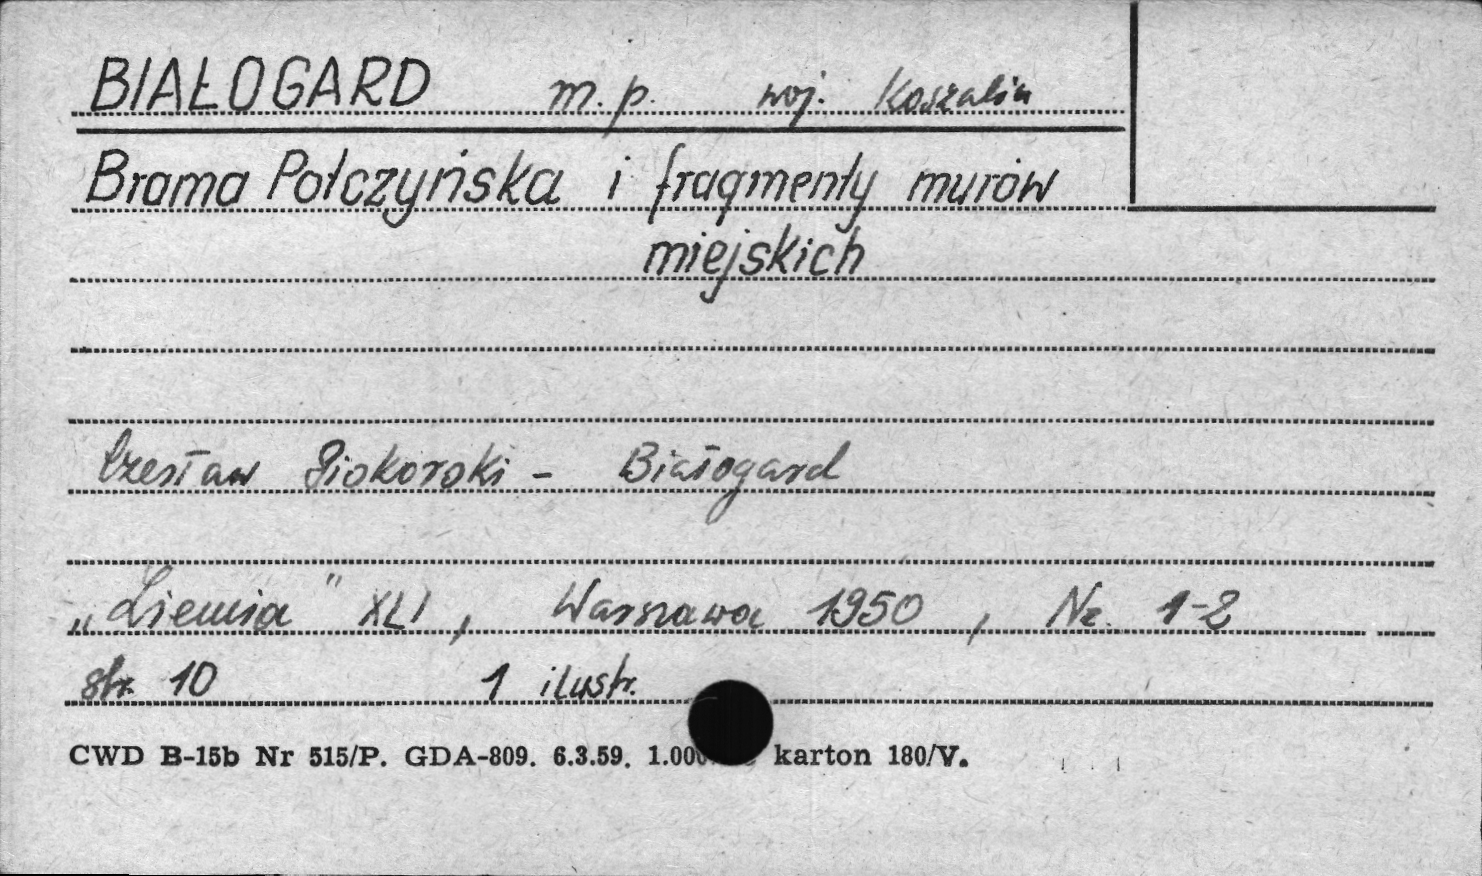 BIAŁOGARD m.p. woj. Koszalin
Brama Połczyńska i fragmenty murów
miejskich
Czesław Piskorski - Białogard
„Ziemia" XLI, Warszawa 1950, Nr. 1-2
str. 10 1 ilustr.
CWD B-15b Nr 515/P. GDA-809. 6.3.59. karton 180/V.